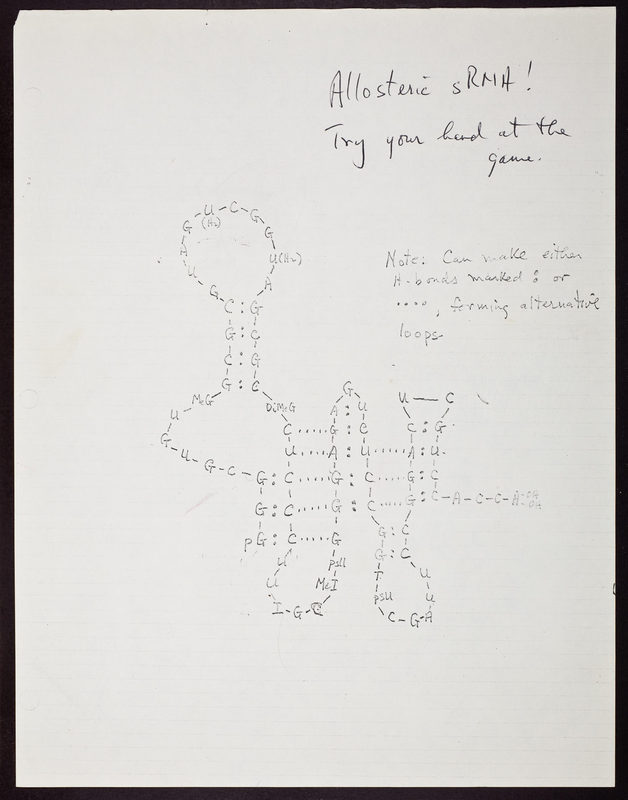 Allosteric sRNA!
Try your hand at the
game.
Note: Can make either
H-bonds marked : or
····, forming alternative
loops.
U C G
G (H₂) G
A U(H₂)
U A
G C : G
G : C
C : G
G : C
MeG DiMeG
U
G
U G C
G : C
G : C
pG : C
G
A : U
C ···· G : C
U ···· A : U ···· A : U
C ···· G : C ···· G : C
C ···· G : C ···· G : C - A - C - C - A OH OH
C ···· G
U — C
C : G
G : C
G : C
U psU
U MeI
I - G - C
T U
psU U
C - G - A